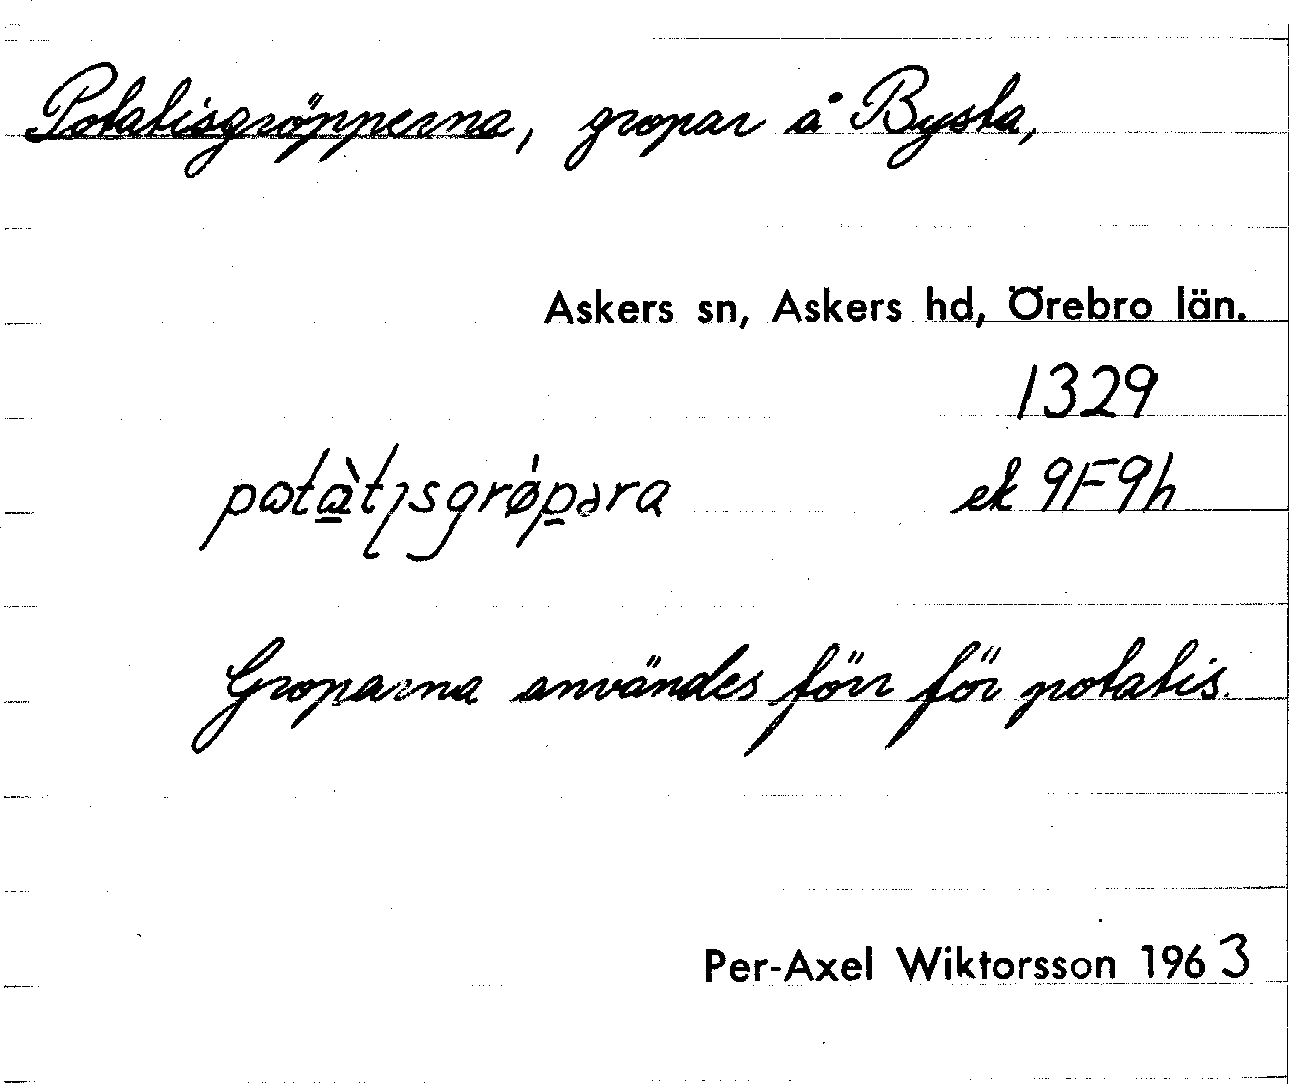 Potatisgröpperna, gropar å Bysta,
Askers sn, Askers hd, Örebro län.
1329
potàtisgrǿpəra ek 9F9h
Groparna användes förr för potatis.
Per-Axel Wiktorsson 1963